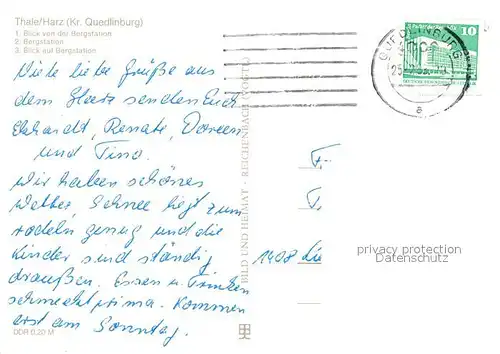 Thale/Harz (Kr. Quedlinburg)
1. Blick von der Bergstation
2. Bergstation
3. Blick auf Bergstation
Viele liebe Grüße aus
dem Harz senden Euch
Ekhardt, Renate, Doreen
und Timo.
Wir haben schönes
Wetter, Schnee liegt zum
rodeln genug und die
Kinder sind ständig
draußen. Essen u. Trinken
schmeckt prima. Kommen
erst am Sonntag.
DDR 0,20 M
BILD UND HEIMAT · REICHENBACH (VOGTL)
QUEDLINBURG
10
F.
T.
1408 Li
privacy protection
Datenschutz